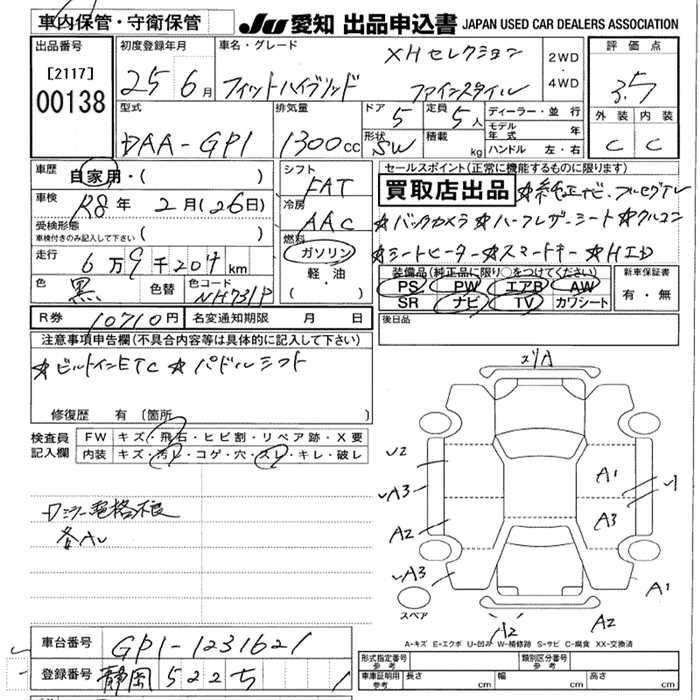 車内保管・守衛保管
JU 愛知 出品申込書 JAPAN USED CAR DEALERS ASSOCIATION
出品番号 [2117] 00138
初度登録年月 25 6月
車名・グレード フィットハイブリッド XHセレクション ファインスタイル
2WD・4WD
評価点 3.5
外装 内装
C C
型式 DAA-GP1
排気量 1300cc
ドア 5 定員 5人
形状 SW 積載 kg
ディーラー・並行
モデル年式 年
ハンドル 左・右
車歴 自家用・( )
車検 R8年 2月(26日)
受検形態 ( )
車検付きのみ記入して下さい
走行 6万9千204km
色 黒 色替 色コード NH731P
シフト FAT
冷房 AAC
燃料 ガソリン
軽・油
( ・ )
セールスポイント(正常に機能するものに限ります)
買取店出品 ☆純正ナビ・フルセグTV
☆バックカメラ☆ハーフレザーシート☆クルコン
☆シートヒーター☆スマートキー☆HID
装備品(純正品に限り○をつけてください)
PS PW エアB AW
SR ナビ TV カワシート
新車保証書
有・無
R券 10710円 名変通知期限 月 日
後日品
注意事項申告欄(不具合内容等は具体的に記入して下さい)
☆ビルトインETC ☆パドルシフト
修復歴 有 [箇所 ]
検査員記入欄
FW キズ・飛石・ヒビ割・リペア跡・X要
内装 キズ・汚レ・コゲ・穴・スレ・キレ・破レ
ロミラー電格不良
各AU
メリA
U2
A3
A2
A3
A1
A3
A1
A2
A2
スペア
A-キズ E-エクボ U-凹み W-補修跡 S-サビ C-腐食 XX-交換済
車台番号 GP1-1231621
登録番号 静岡 522 ち 1
形式指定番号 参考
類別区分番号 参考
車庫証明用参考 長さ cm 幅 cm 高さ cm